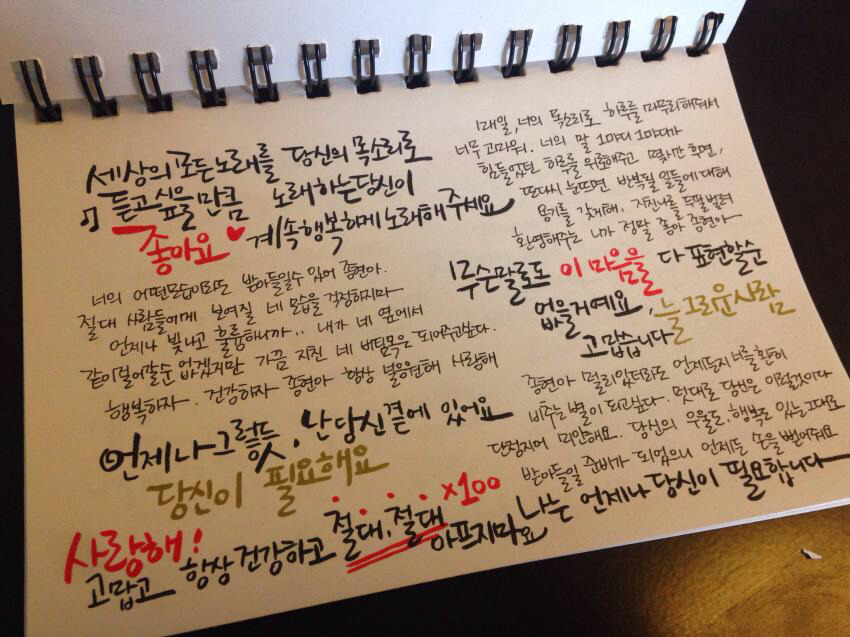 세상의 모든노래를 당신의 목소리로
♫ 듣고싶을만큼 노래하는당신이
좋아요♥ 계속행복하게노래해주세요
너의 어떤모습이라도 받아들일수 있어 종현아.
절대 사람들에게 보여질 네 모습을 걱정하지마
언제나 빛나고 훌륭하니까.. 내가 네 옆에서
같이걸어갈순 없겠지만 가끔 지친 네 버팀목은 되어주고싶다.
행복하자. 건강하자 종현아 항상 널응원해 사랑해
언제나그렇듯, 난당신곁에 있어요
당신이 필요해요
매일, 너의 목소리로 하루를 마무리해줘서
너무고마워. 너의 말 1마디 1마디가
힘들었던 하루를 위로해주고 몇시간 후면,
또다시 눈뜨면 반복될 일들에 대해
용기를 갖게해. 지친나를 두팔벌려
환영해주는 네가 정말 좋아 종현아
무슨말로도 이 마음을 다 표현할순
없을거예요, 늘그리운사람
고맙습니다
종현아 멀리있더라도 언제든지 너를 환히
비추는 별이 되고싶다. 멋대로 당신은 이럴것이다
단정지어 미안해요. 당신의 우울도, 행복도 있는그대로
받아들일 준비가 되었으니 언제든 손을 뻗어줘요
사랑해! 절대, 절대 ×100
고맙고 항상 건강하고 아프지마요 나는 언제나 당신이 필요합니다